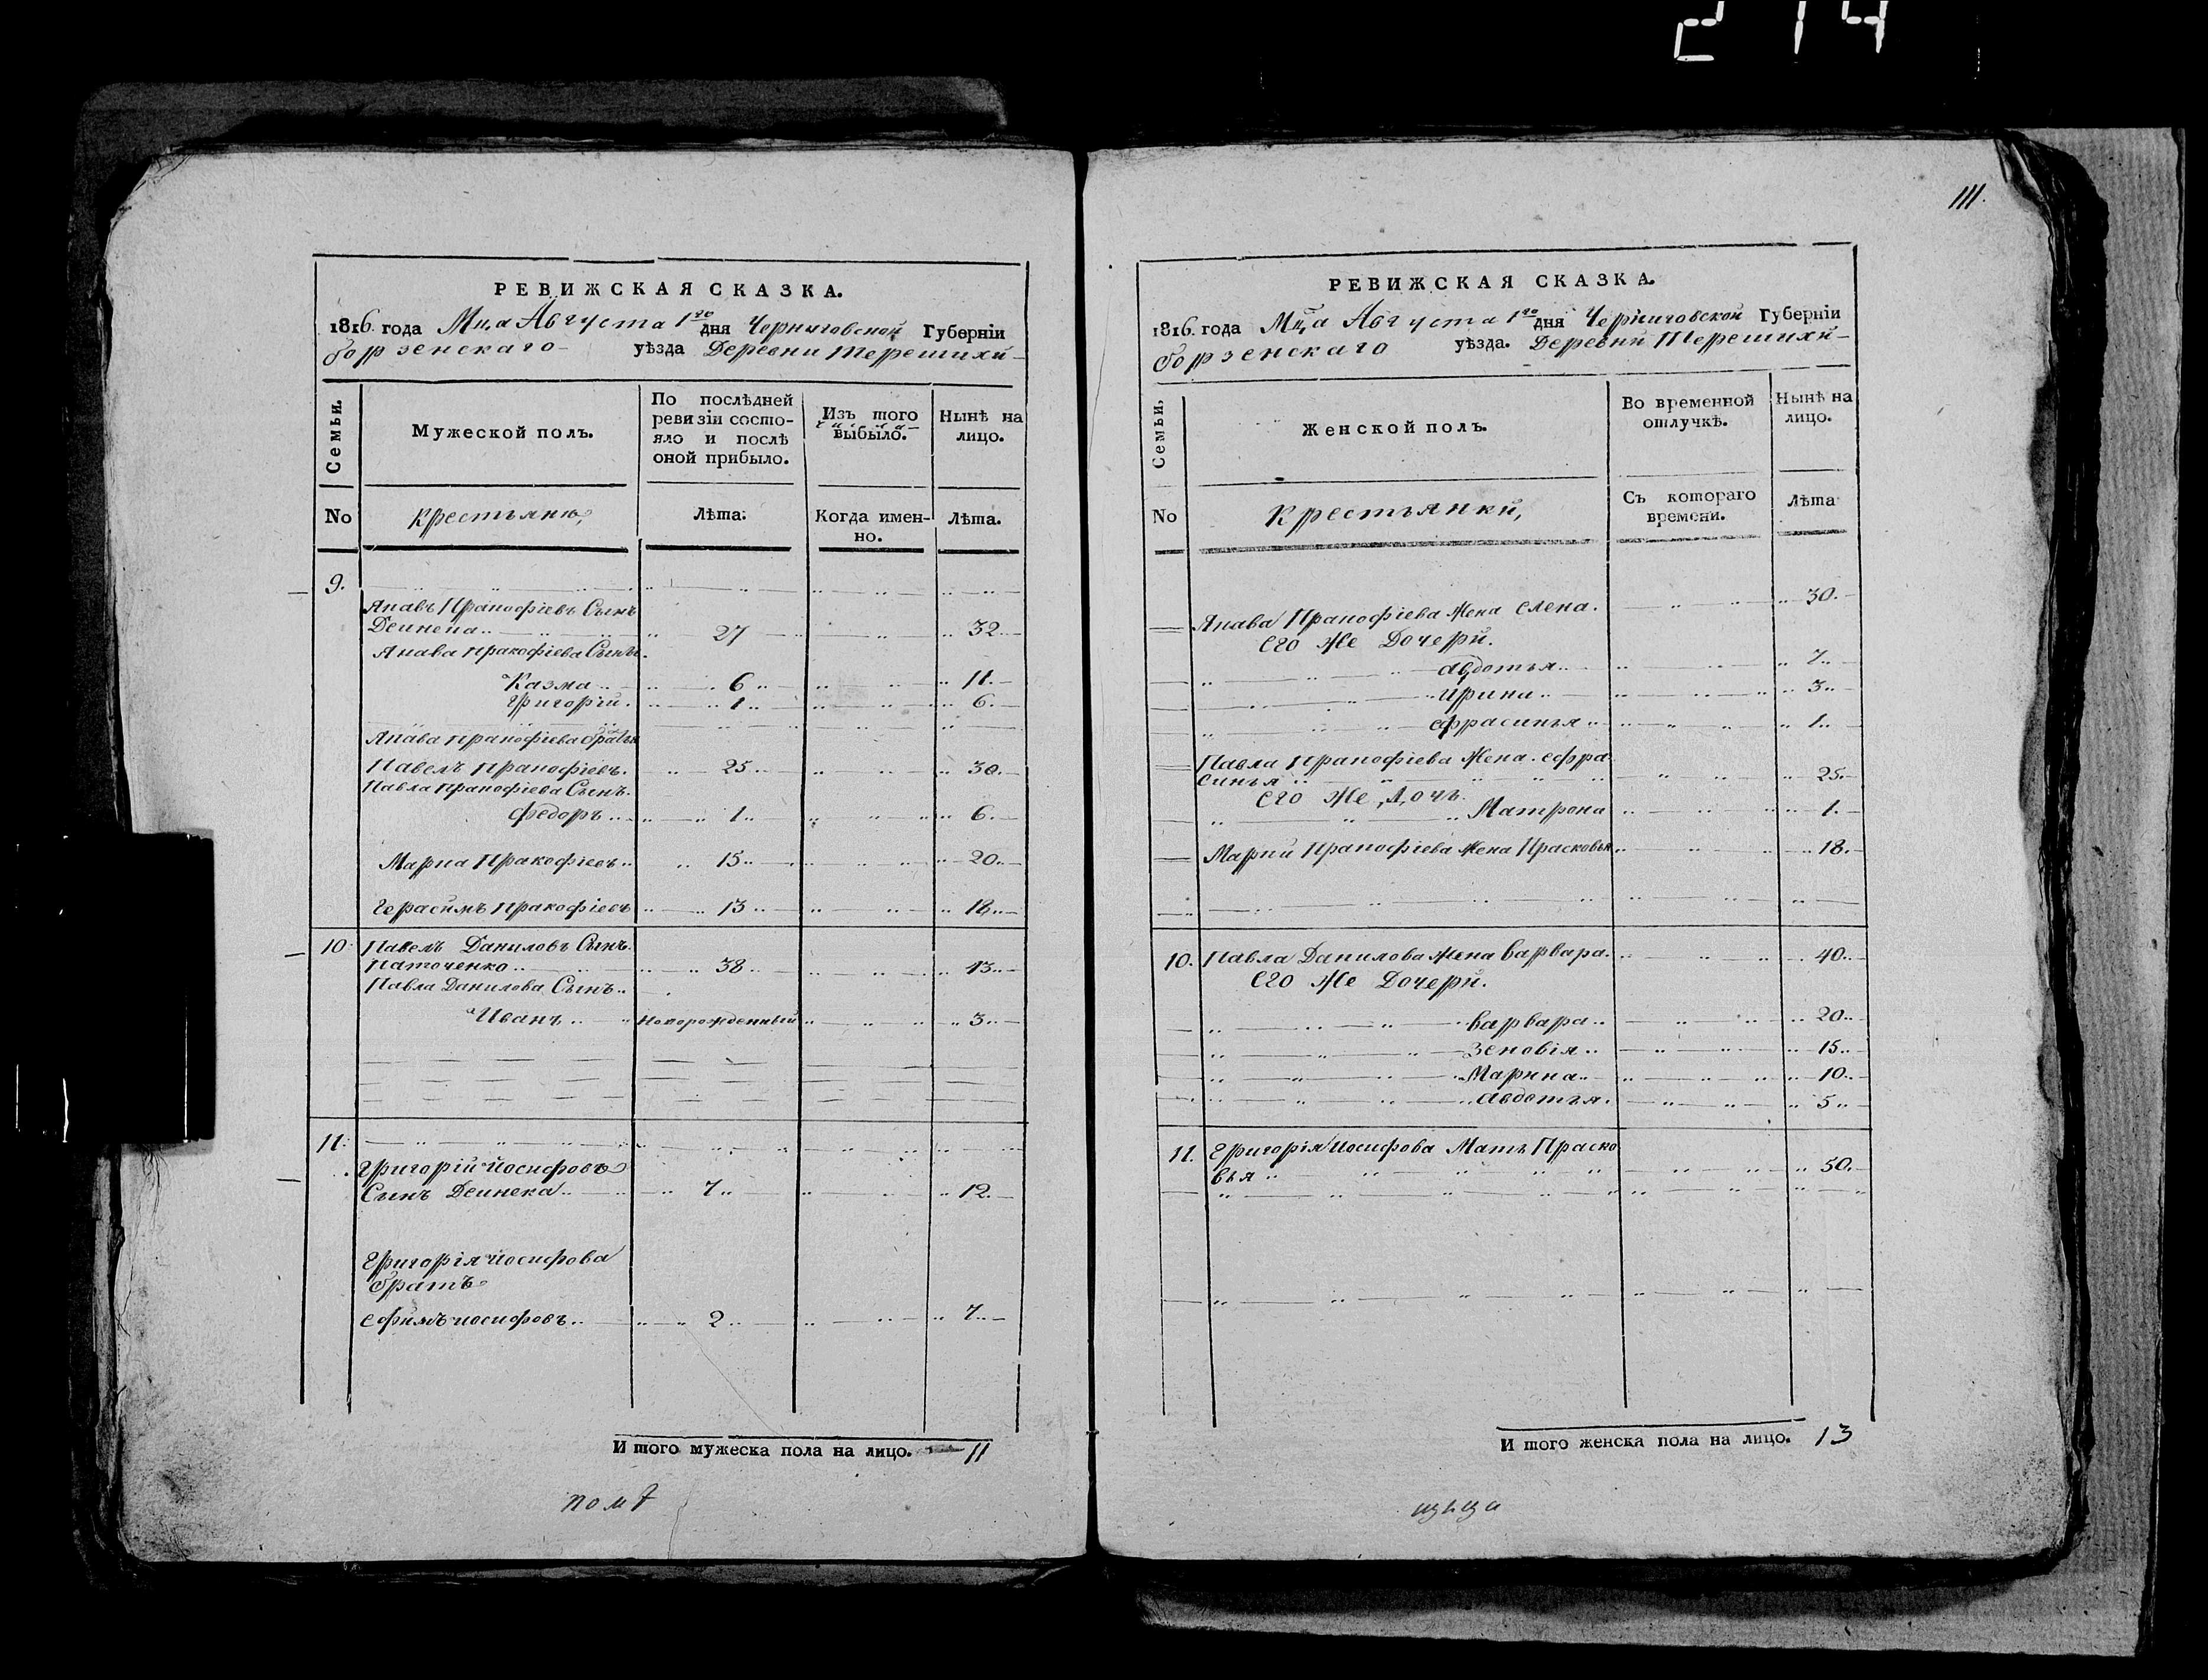 214
РЕВИЖСКАЯ СКАЗКА.
1816. года Мц,а Августа 1го дня Черниговской Губерніи
борзенскаго уѣзда Деревни Терешихи
Семьи.
Мужеской полъ.
По послѣдней
ревизіи состо-
яло и послѣ
оной прибыло.
Изъ того
числа
выбыло.
Нынѣ на
лицо.
No
Крестьянъ,
Лѣта.
Когда имен-
но.
Лѣта.
9.
Анавъ Пракофіевъ Сынъ
Деинека 27 32
Анава Пракофіева Сынъ.
Казма 6 11.
Григорій. 1 6.
Анава Пракофіева братья
Павелъ Пракофіевъ. 25 30.
Павла Пракофіева Сынъ.
Федоръ 1 6.
Марка Пракофіевъ 15 20
Герасимъ Пракофіевъ 13 18
10. Павелъ Даниловъ Сынъ.
38 43
Павла Данилова Сынъ
Иванъ Новорожденный 3
11.
Григорій Иосифовъ
Сынъ Деинека 7 12.
Григорія Иосифова
братъ
Ефимъ Иосифовъ 2 7
Итого мужеска пола на лицо. 11
111.
РЕВИЖСКАЯ СКАЗКА.
1816. года Мц,а Августа 1го дня Черниговской Губерніи
борзенскаго уѣзда. Деревни Терешихи
Семьи,
Женской полъ.
Во временной
отлучкѣ.
Нынѣ на
лицо.
No
Крестьянки,
Съ котораго
времени.
Лѣта
Анава Пракофіева Жена Елена. 30.
Его Же Дочери.
Авдотья 7
Ирина 3
Ефрасинья 1
Павла Пракофіева Жена Ефра
синья 25
Его Же Дочъ.
Матрона 1.
Марки Пракофіева Жена Прасковья 18.
10. Павла Данилова Жена Варвара. 40
Его Же Дочери.
Варвара 20
Зеновія 15
Марина 10
Авдотья. 5
11. Григорія Иосифова Мать Праско
вья 50.
Итого женска пола на лицо. 13